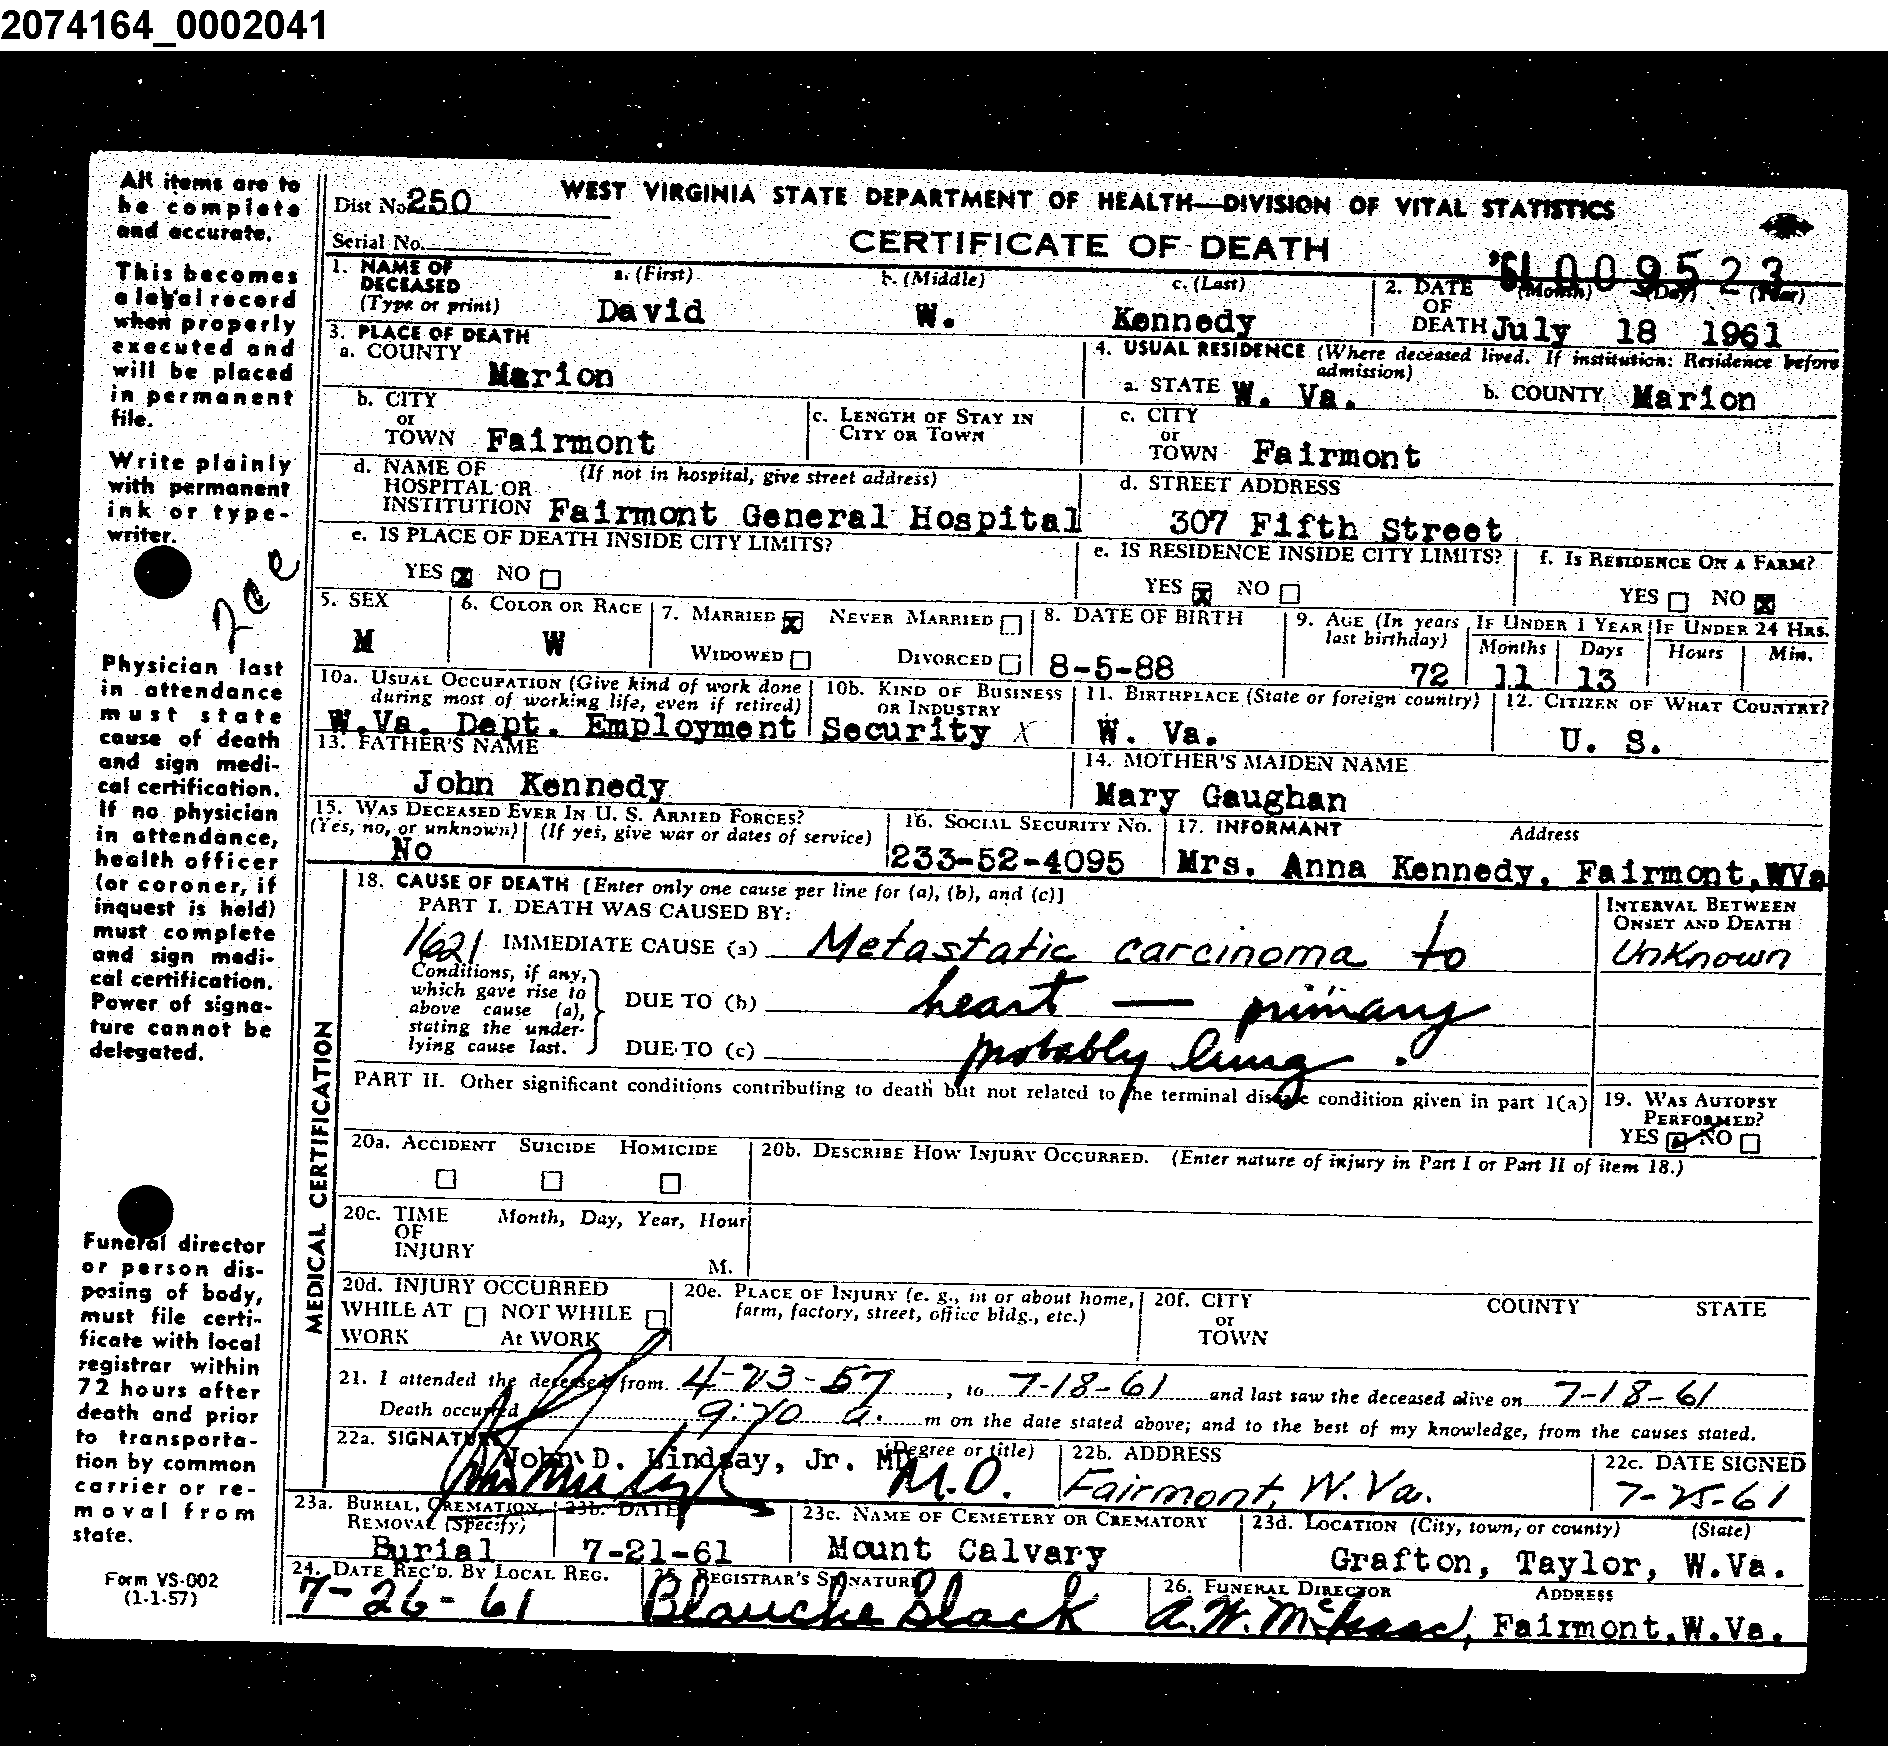 2074164_0002041
All items are to
be complete
and accurate.
This becomes
a legal record
when properly
executed and
will be placed
in permanent
file.
Write plainly
with permanent
ink or type-
writer.
Physician last
in attendance
must state
cause of death
and sign medi-
cal certification.
If no physician
in attendance,
health officer
(or coroner, if
inquest is held)
must complete
and sign medi-
cal certification.
Power of signa-
ture cannot be
delegated.
Funeral director
or person dis-
posing of body,
must file certi-
ficate with local
registrar within
72 hours after
death and prior
to transporta-
tion by common
carrier or re-
moval from
state.
Form VS-002
(1-1-57)
Dist No. 250 WEST VIRGINIA STATE DEPARTMENT OF HEALTH—DIVISION OF VITAL STATISTICS
Serial No. CERTIFICATE OF DEATH
'61 009523
1. NAME OF DECEASED (Type or print) a. (First) b. (Middle) c. (Last) 2. DATE OF DEATH (Month) (Day) (Year)
David W. Kennedy July 18 1961
3. PLACE OF DEATH
a. COUNTY Marion
4. USUAL RESIDENCE (Where deceased lived. If institution: Residence before admission)
a. STATE W. Va. b. COUNTY Marion
b. CITY or TOWN Fairmont c. LENGTH OF STAY IN CITY OR TOWN
c. CITY or TOWN Fairmont
d. NAME OF HOSPITAL OR INSTITUTION (If not in hospital, give street address) Fairmont General Hospital
d. STREET ADDRESS 307 Fifth Street
e. IS PLACE OF DEATH INSIDE CITY LIMITS?
YES X NO
e. IS RESIDENCE INSIDE CITY LIMITS? f. IS RESIDENCE ON A FARM?
YES X NO YES NO X
5. SEX M 6. COLOR OR RACE W 7. MARRIED X NEVER MARRIED WIDOWED DIVORCED 8. DATE OF BIRTH 8-5-88
9. AGE (In years last birthday) 72 IF UNDER 1 YEAR Months 11 Days 13 IF UNDER 24 HRS. Hours Min.
10a. USUAL OCCUPATION (Give kind of work done during most of working life, even if retired) 10b. KIND OF BUSINESS OR INDUSTRY
W.Va. Dept. Employment Security X
11. BIRTHPLACE (State or foreign country) W. Va. 12. CITIZEN OF WHAT COUNTRY? U. S.
13. FATHER'S NAME John Kennedy
14. MOTHER'S MAIDEN NAME Mary Gaughan
15. WAS DECEASED EVER IN U. S. ARMED FORCES?
(Yes, no, or unknown) (If yes, give war or dates of service)
No
16. SOCIAL SECURITY No. 233-52-4095
17. INFORMANT Address
Mrs. Anna Kennedy, Fairmont,WVa
MEDICAL CERTIFICATION
18. CAUSE OF DEATH [Enter only one cause per line for (a), (b), and (c)]
PART I. DEATH WAS CAUSED BY:
INTERVAL BETWEEN ONSET AND DEATH
1621 IMMEDIATE CAUSE (a) Metastatic carcinoma to Unknown
Conditions, if any, which gave rise to above cause (a), stating the underlying cause last.
DUE TO (b) heart — primary
DUE TO (c) probably lung.
PART II. Other significant conditions contributing to death but not related to the terminal disease condition given in part 1(a)
19. WAS AUTOPSY PERFORMED?
YES NO
20a. ACCIDENT SUICIDE HOMICIDE
20b. DESCRIBE HOW INJURY OCCURRED. (Enter nature of injury in Part I or Part II of item 18.)
20c. TIME OF INJURY Month, Day, Year, Hour M.
20d. INJURY OCCURRED
WHILE AT WORK NOT WHILE At WORK
20e. PLACE OF INJURY (e. g., in or about home, farm, factory, street, office bldg., etc.)
20f. CITY or TOWN COUNTY STATE
21. I attended the deceased from 4-23-57, to 7-18-61 and last saw the deceased alive on 7-18-61
Death occurred 9:20 a. m on the date stated above; and to the best of my knowledge, from the causes stated.
22a. SIGNATURE (Degree or title) 22b. ADDRESS 22c. DATE SIGNED
John D. Lindsay, Jr. MD M.D. Fairmont, W.Va. 7-25-61
23a. BURIAL, CREMATION, REMOVAL (Specify) Burial
23b. DATE 7-21-61
23c. NAME OF CEMETERY OR CREMATORY Mount Calvary
23d. LOCATION (City, town, or county) (State) Grafton, Taylor, W.Va.
24. DATE REC'D. BY LOCAL REG. 7-26-61
25. REGISTRAR'S SIGNATURE Blanche Slack
26. FUNERAL DIRECTOR ADDRESS
A. W. Fairmont,W.Va.